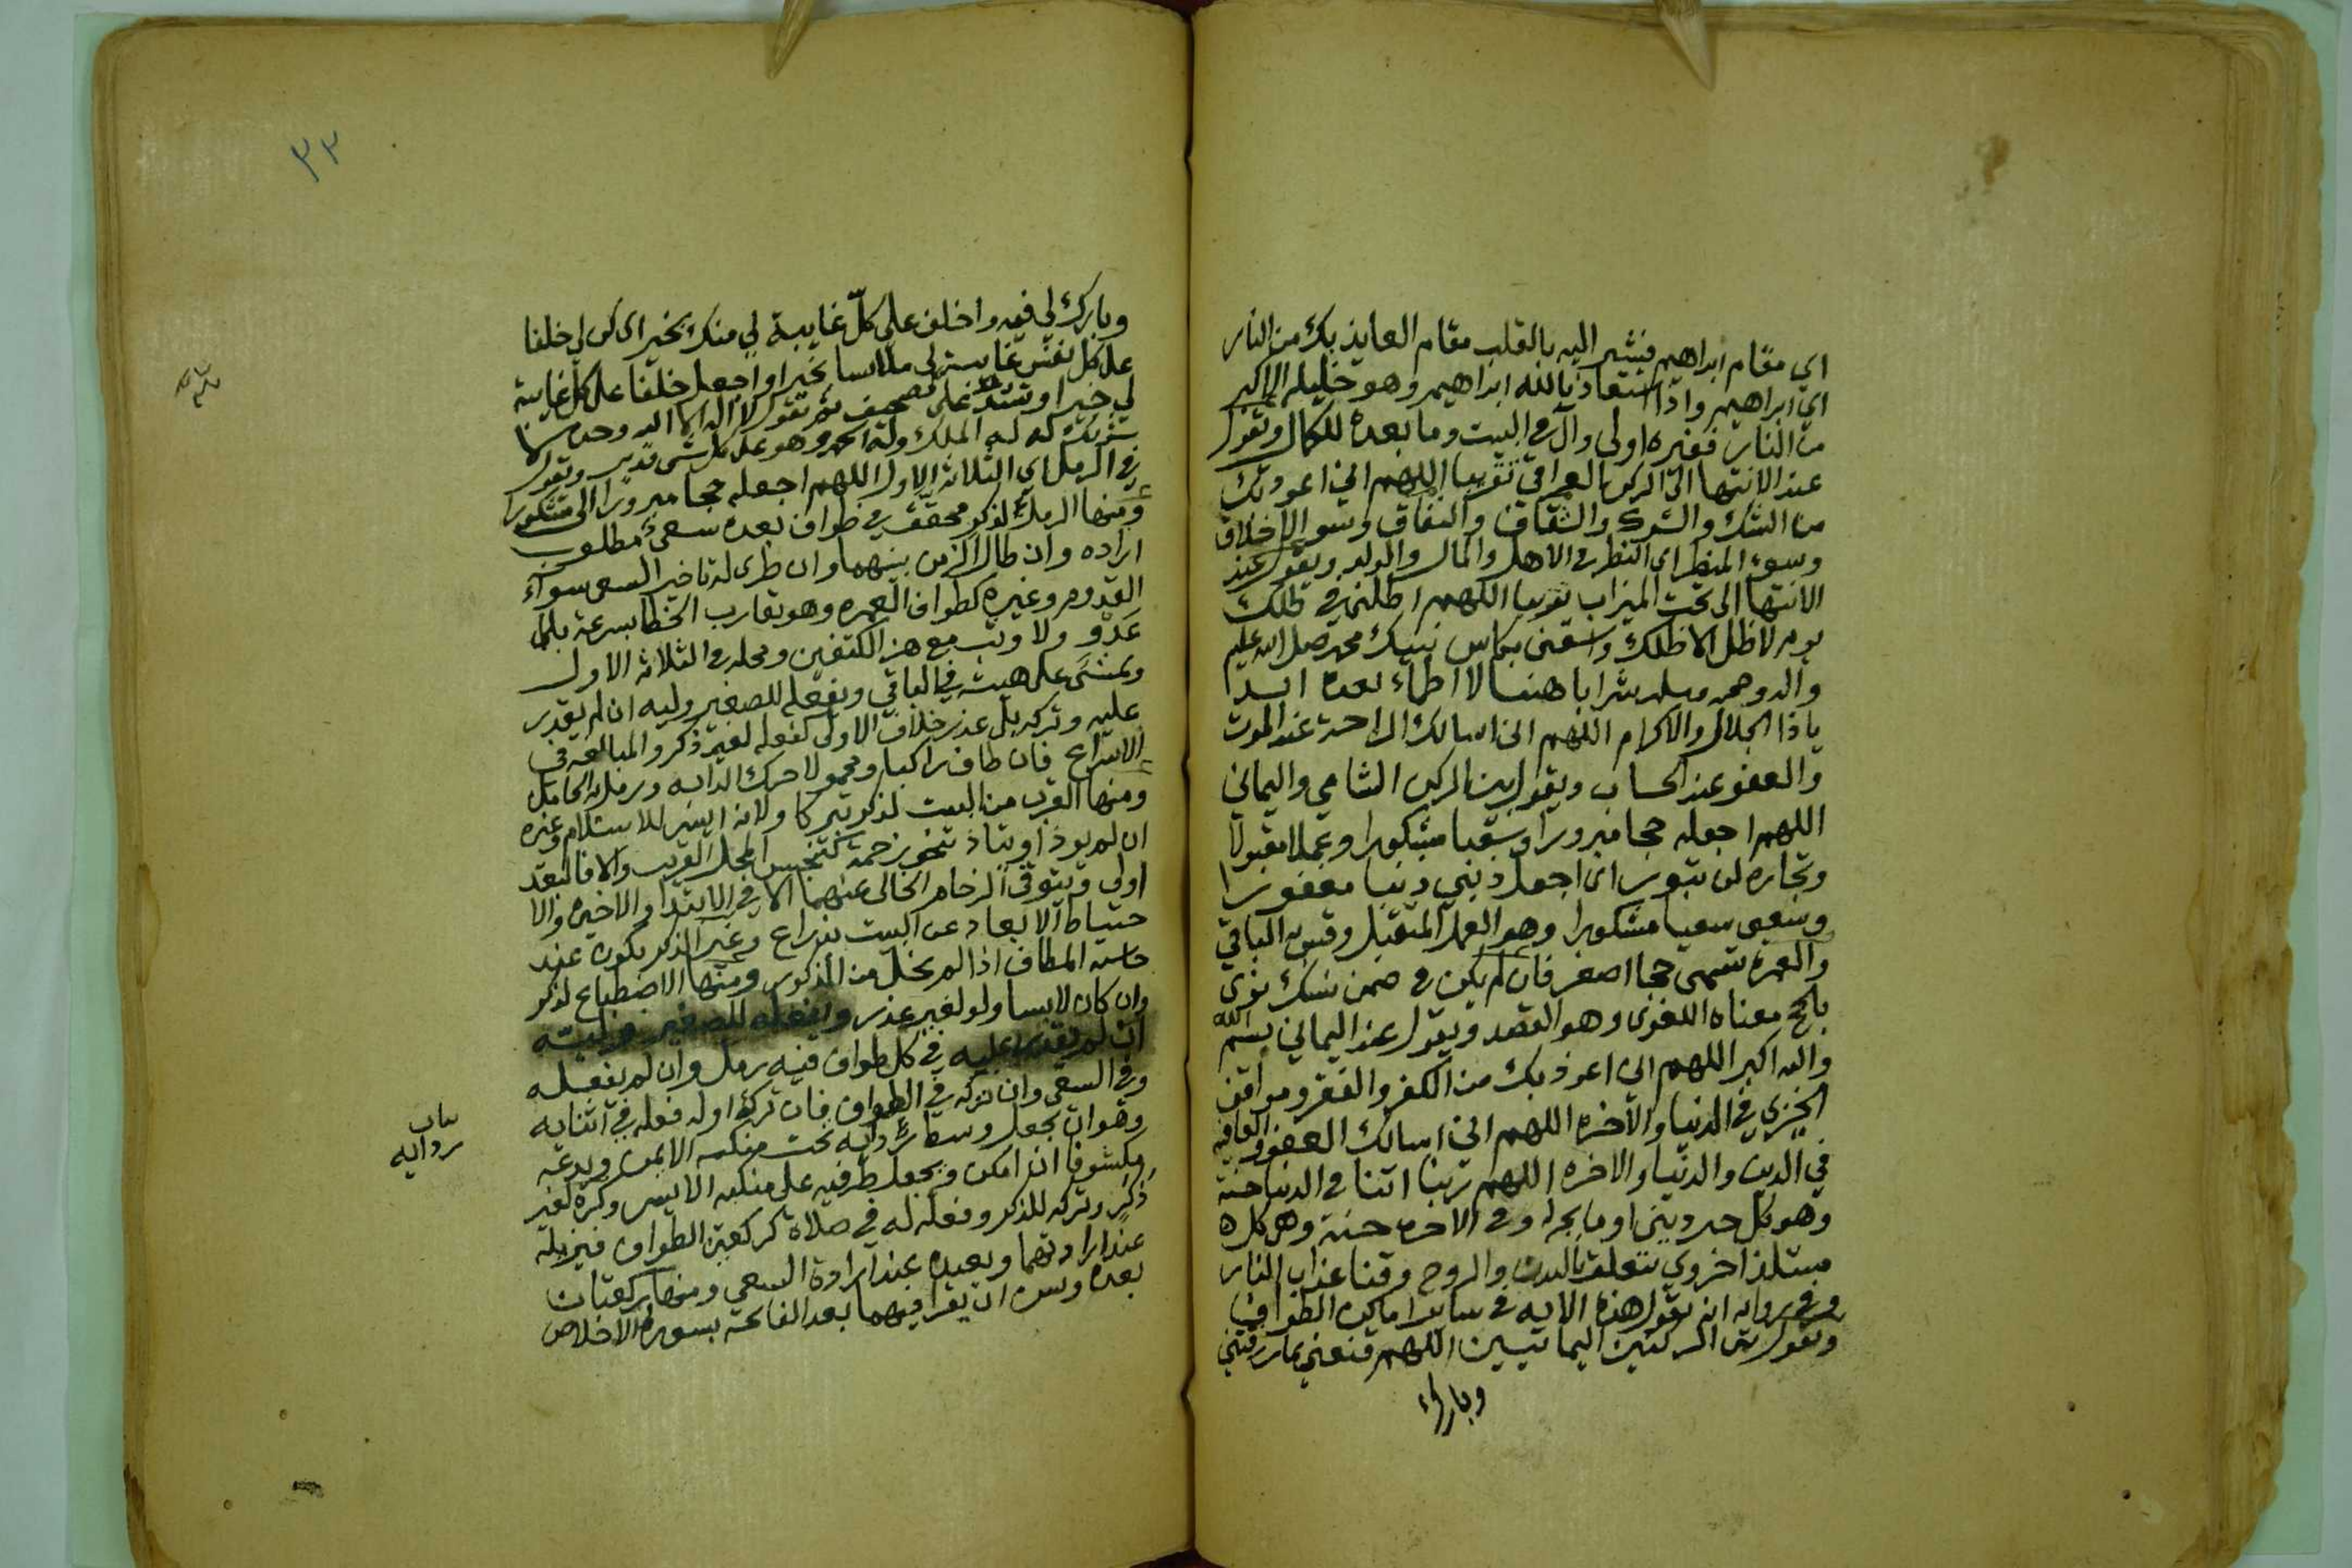 اي مقام ابراهيم فنشير اليه بالقلب مقام العايذ بك من النار
اي ابراهيم واذا استعاذ بالله ابراهيم وهو خليله الاكبر
من النار فغيره اولى وآل في البيت وما بعده للكمال وتقول
عند الانتها الى الركن العراقي تقريبا اللهم اني اعوذ بك
من الشك والشرك والشقاق والنفاق وسو الاخلاق
وسوء المنظر اى النظر في الاهل والمال والولد ويقول عند
الانتها الى تحت الميزاب تقريبا اللهم اظلني في ظلك
يوم لا ظل الا ظلك واسقني بكاس نبيك محمد صلى الله عليه
واله وصحبه وسلم شرابا هنيا لا اظماء بعده ابدا
ياذا الجلال والاكرام اللهم انى اسالك الراحة عند الموت
والعفو عند الحساب ويقول بين الركن الشامي واليماني
اللهم اجعله حجا مبرورا وسعيا مشكورا وعملا مقبولا
وتجاره لن تبور اى اجعل ذنبي ذنبا مغفورا
وسعيى سعيا مشكورا وهو العمل المتقبل وقس به الباقي
والعمرة تسمى حجا اصغر فان لم يكن في ضمن نسك نوى
بالحج معناه اللغوى وهو القصد ويقول عند اليماني بسم الله
والله اكبر اللهم انى اعوذ بك من الكفر والفقر ومواقف
الخزي في الدنيا والاخره اللهم اني اسالك العفو والعافيه
في الدين والدنيا والاخره اللهم ربنا اتنا في الدنيا حسنة
وهو كل خير ديني او ما يجر له وفي الاخره حسنة وهي كل
مستلذ اخروي يتعلق بالبدن والروح وقنا عذاب النار
وفي روايه انه يقول هذه الايه في ساير اماكن الطواف
وتقول بين الركنين اليمانيين اللهم قنعني بما رزقتني
وبارك
٣٢
وبارك لي فيه واخلف على كل غايبة لي منك بخير اى كن لي خلفا
على كل نفس غايبة لي ملابسا بخير او اجعل خلفا على كل غايبة
لي خيرا وتشدد على تصحيف ثم تقول لا اله الا الله وحده لا
شريك له له الملك وله الحمد وهو على كل شى قدير وتقول
في الرمل اي الثلاثه الاول اللهم اجعله حجا مبرورا الى مشكورا
ومنها الرمل لذكر محقق في طواف بعده سعي مطلوب
اراده وان طال الزمن بينهما وان طرى له تاخير السعى سواء
القدوم وغيره كطواف العمره وهو تقارب الخطا بسرعة بلا
عدو ولا وثب مع هز الكتفين ومحله في الثلاثه الاول
ويمشى على هيئته في الباقي ويفعله للصغير وليه ان لم يقدر
عليه وتركه بلا عذر خلاف الاولى كفعله لغير ذكر والمبالغه في
الاسراع فان طاف راكبا ومحمولا حرك الدابه ورمل به الحامل
ومنها القرب من البيت لذكر تبركا ولانه ايسر للاستلام وغيره
ان لم يوذ او يتاذ بنحو زحمة كتنجس المحل القريب والا فالبعد
اولى ويتوقى الزحام الخالى عنهما الا في الابتدا والاخيره والا
حتياط الابعاد عن البيت بذراع وغير الذكر يكون عند
حاشيه المطاف اذا لم يخل من الذكور ومنها الاضطباع لذكر
وان كان لابسا ولو لغير عذر ويفعله للصغير وليه
ان لم يقدر عليه في كل طواف فيه رمل وان لم يفعله
وفي السعى وان تركه في الطواف فان تركه اوله فعله في اثنايه
وهو ان يجعل وسط ردايه تحت منكبه الايمن ويدعه
مكشوفا ان امكن ويجعل طرفيه على منكبه الايسر وكره لغير
ذكر وتركه للذكر وفعله له في صلاة كركعتي الطواف فيزيله
عند ارادتهما ويعيده عند ارادة السعي ومنها ركعتان
بعده وسن ان يقرا فيهما بعد الفاتحة بسورة الاخلاص